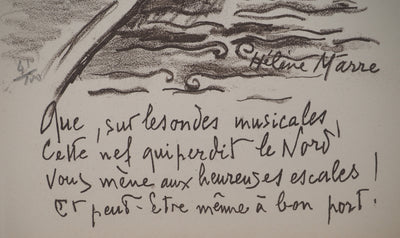 Hélène Marre
Que, sur les ondes musicales,
Cette nef qui perdit le Nord
Vous mène aux heureuses escales !
Et peut-être même à bon port.